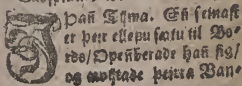 J Þañ Tijma. Eñ seinast
er þeir ellefu sætu til Bo-
rds/ Opeñberade hañ sig/
og avijtade þeirra Van-